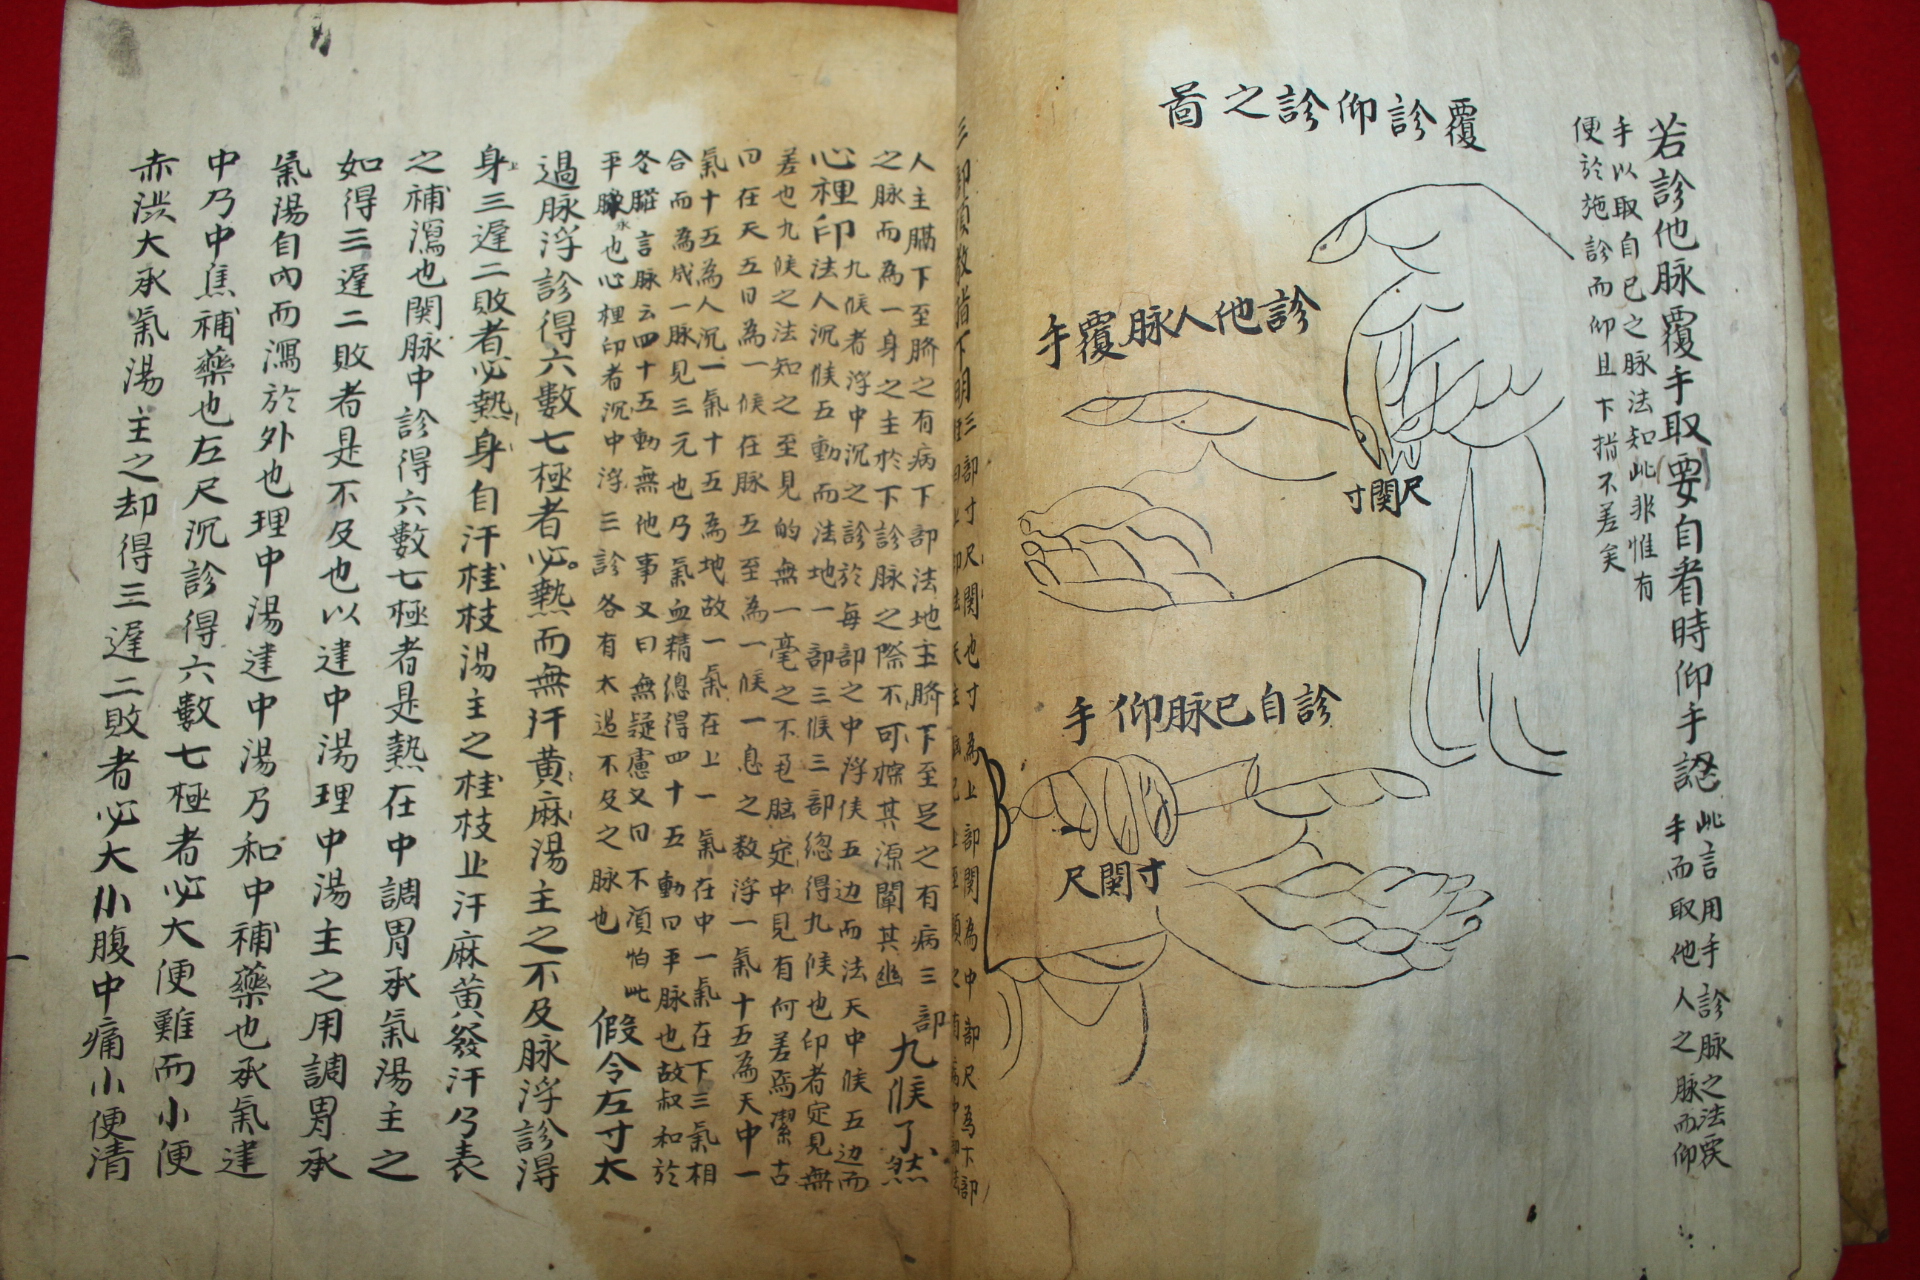 若診他脉覆手取要自者時仰手認
此言用手診脉之法覆
手而取他人之脉而仰
手以取自已之脉法知此非惟有
便於施診而仰且下指不差矣
覆診仰診之啚
診他人脉覆手
尺関寸
診自已脉仰手
寸関尺
三部須教指下明
三部寸尺関也寸為上部関為中部尺為下部
人主膈下至臍之有病下部法地主臍下至足之有病三部
九候了然
之脉而為一身之主於下診脉之際不可探其源闡其幽
心裡印
九候者浮中沉之診於每部之中浮候五边而法天中候五边而
法人沉候五動而法地一部三候三部緫得九候也印者定見無
差也九候之法知之至見的無一毫之不
定中見有何差焉潔古
曰在天五日為一候在脉五至為一候一息之数浮一氣十五為天中一
氣十五為人沉一氣十五為地故一氣在上一氣在中一氣在下三氣相
合而為成一脉見三元也乃氣血精總得四十五動曰平脉也故叔和於
言脉云四十五動無他事又曰無疑慮又曰不湏怕此
平脉也心裡印者沉中浮三診各有太過不及之脉也
假令左寸太
過脉浮診得六數七極者必熱而無汗黄麻湯主之不及脉浮診得
身三遲二敗者必熱身自汗桂枝湯主之桂枝止汗麻黄發汗乃表
之補瀉也関脉中診得六數七極者是熱在中調胃承氣湯主之
如得三遲二敗者是不及也以建中湯理中湯主之用調胃承
氣湯自內而瀉於外也理中湯建中湯乃和中補藥也承氣建
中乃中焦補藥也左尺沉診得六數七極者必大便難而小便
赤澁大承氣湯主之却得三遲二敗者必大小腹中痛小便清